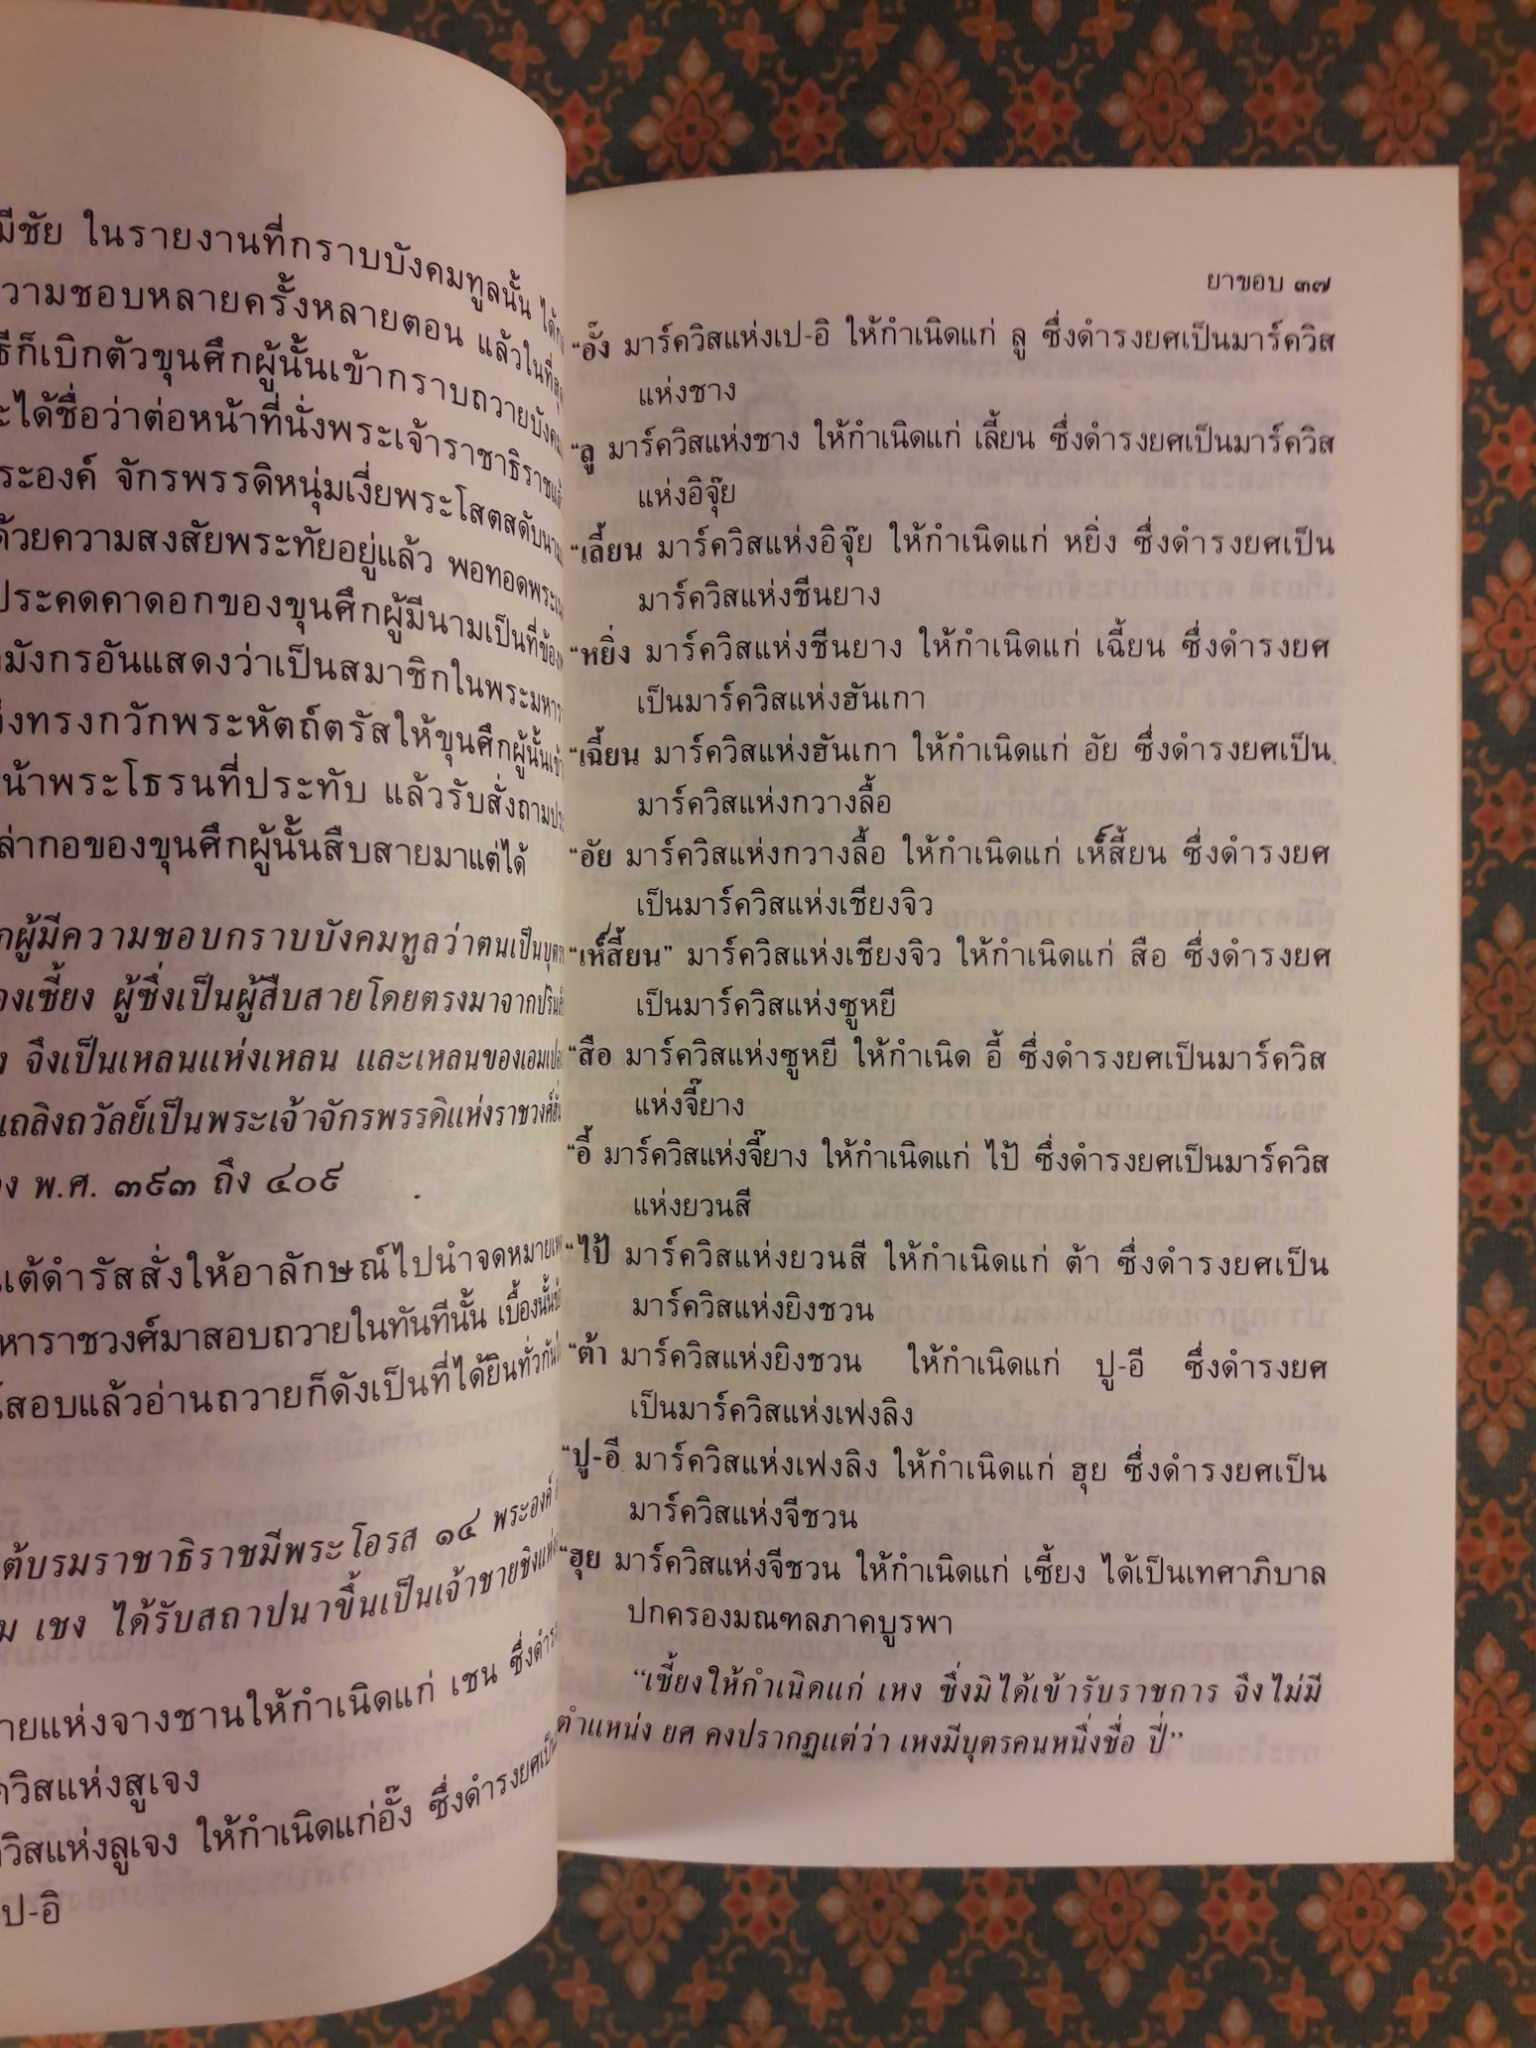 มีชัย ในรายงานที่กราบบังคมทูลนั้น
วามชอบหลายครั้งหลายตอน แล้วในที่สุด
ธีก็เบิกตัวขุนศึกผู้นั้นเข้ากราบถวายบังคม
ะได้ชื่อว่าต่อหน้าที่นั่งพระเจ้าราชาธิราช
ระองค์ จักรพรรดิหนุ่มเงี่ยพระโสตสดับนาม
ด้วยความสงสัยพระทัยอยู่แล้ว พอทอดพระเน
ประคดคาดอกของขุนศึกผู้มีนามเป็นที่ข้อง
มังกรอันแสดงว่าเป็นสมาชิกในพระมหาร
ึงทรงกวักพระหัตถ์ตรัสให้ขุนศึกผู้นั้นเข้า
น้าพระโธรนที่ประทับ แล้วรับสั่งถามประ
ล่ากอของขุนศึกผู้นั้นสืบสายมาแต่ได้
กผู้มีความชอบกราบบังคมทูลว่าตนเป็นบุตร
องเซี้ยง ผู้ซึ่งเป็นผู้สืบสายโดยตรงมาจากปรินส์
ง จึงเป็นเหลนแห่งเหลน และเหลนของเอมเปอ
แถลิงถวัลย์เป็นพระเจ้าจักรพรรดิแห่งราชวงศ์ฮั่น
อง พ.ศ. ๓๙๓ ถึง ๔๐๙
นเต้ดำรัสสั่งให้อาลักษณ์ไปนำจดหมายเหตุ
หาราชวงศ์มาสอบถวายในทันทีนั้น เบื้องนั้น
้สอบแล้วอ่านถวายก็ดังเป็นที่ได้ยินทั่วกัน
ต้บรมราชาธิราชมีพระโอรส ๑๔ พระองค์
ม เชง ได้รับสถาปนาขึ้นเป็นเจ้าชายชิงแห่ง
ายแห่งจางชานให้กำเนิดแก่ เชน ซึ่งดำร
ควิสแห่งสูเจง
ควิสแห่งลูเจง ให้กำเนิดแก่อั๊ง ซึ่งดำรงยศเป็น
ป-อิ
ยาขอบ ๓๗
“อั๊ง มาร์ควิสแห่งเป-อิ ให้กำเนิดแก่ ลู ซึ่งดำรงยศเป็นมาร์ควิส
แห่งชาง
“ลู มาร์ควิสแห่งชาง ให้กำเนิดแก่ เลี้ยน ซึ่งดำรงยศเป็นมาร์ควิส
แห่งอิจุ๊ย
“เลี้ยน มาร์ควิสแห่งอิจุ๊ย ให้กำเนิดแก่ หยิ่ง ซึ่งดำรงยศเป็น
มาร์ควิสแห่งชีนยาง
“หยิ่ง มาร์ควิสแห่งชีนยาง ให้กำเนิดแก่ เฉี้ยน ซึ่งดำรงยศ
เป็นมาร์ควิสแห่งฮันเกา
“เฉี้ยน มาร์ควิสแห่งฮันเกา ให้กำเนิดแก่ อัย ซึ่งดำรงยศเป็น
มาร์ควิสแห่งกวางลื้อ
“อัย มาร์ควิสแห่งกวางลื้อ ให้กำเนิดแก่ เห็สี้ยน ซึ่งดำรงยศ
เป็นมาร์ควิสแห่งเชียงจิว
“เห็สี้ยน” มาร์ควิสแห่งเชียงจิว ให้กำเนิดแก่ สือ ซึ่งดำรงยศ
เป็นมาร์ควิสแห่งซูหยี
“สือ มาร์ควิสแห่งซูหยี ให้กำเนิด อี้ ซึ่งดำรงยศเป็นมาร์ควิส
แห่งจี๊ยาง
“อี้ มาร์ควิสแห่งจี๊ยาง ให้กำเนิดแก่ ไป้ ซึ่งดำรงยศเป็นมาร์ควิส
แห่งยวนสี
“ไป้ มาร์ควิสแห่งยวนสี ให้กำเนิดแก่ ต้า ซึ่งดำรงยศเป็น
มาร์ควิสแห่งยิงชวน
“ต้า มาร์ควิสแห่งยิงชวน ให้กำเนิดแก่ ปู-อี ซึ่งดำรงยศ
เป็นมาร์ควิสแห่งเฟงลิง
“ปู-อี มาร์ควิสแห่งเฟงลิง ให้กำเนิดแก่ ฮุย ซึ่งดำรงยศเป็น
มาร์ควิสแห่งจีชวน
“ฮุย มาร์ควิสแห่งจีชวน ให้กำเนิดแก่ เซี้ยง ได้เป็นเทศาภิบาล
ปกครองมณฑลภาคบูรพา
“เซี้ยงให้กำเนิดแก่ เหง ซึ่งมิได้เข้ารับราชการ จึงไม่มี
ตำแหน่ง ยศ คงปรากฏแต่ว่า เหงมีบุตรคนหนึ่งชื่อ ปี่”